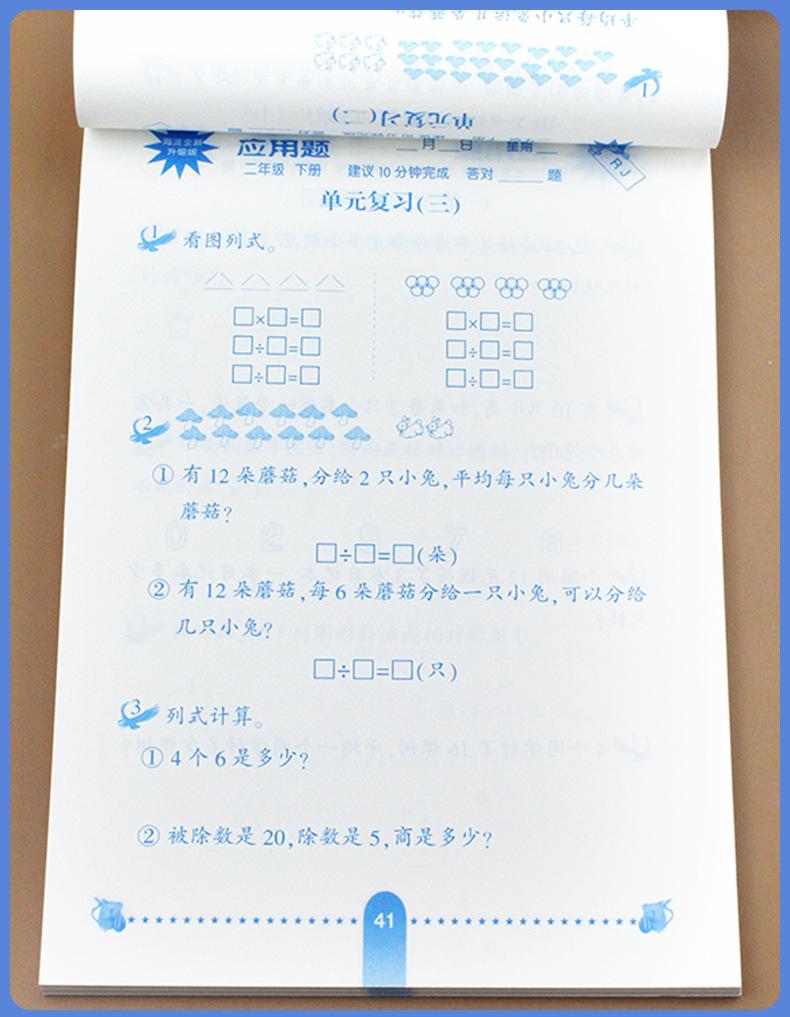 平均每只小兔运几朵蘑菇?
1
单元复习(二)
海淀全新
升级版
应用题
月 日 星期
RJ
二年级 下册 建议10分钟完成 答对____题
单元复习(三)
1 看图列式。
□×□=□ □×□=□
□÷□=□ □÷□=□
□÷□=□ □÷□=□
2
① 有12朵蘑菇,分给2只小兔,平均每只小兔分几朵
蘑菇?
□÷□=□(朵)
② 有12朵蘑菇,每6朵蘑菇分给一只小兔,可以分给
几只小兔?
□÷□=□(只)
3 列式计算。
① 4个6是多少?
② 被除数是20,除数是5,商是多少?
41